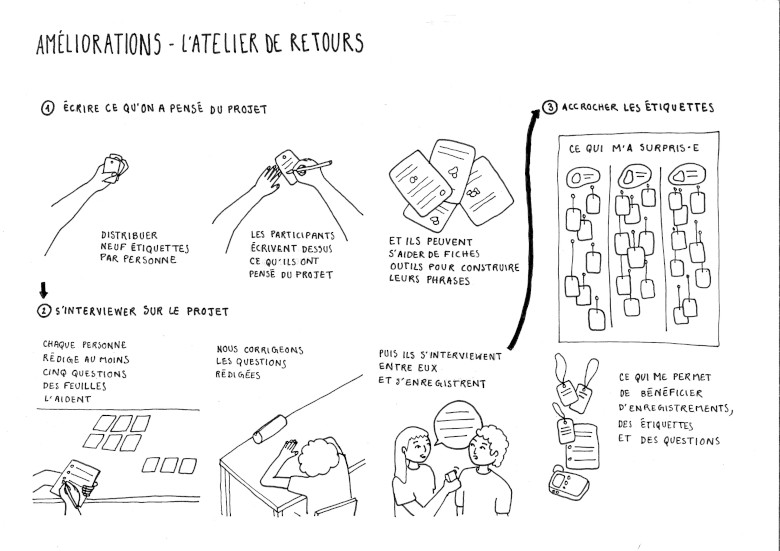 AMÉLIORATIONS - L'ATELIER DE RETOURS
1 ÉCRIRE CE QU'ON A PENSÉ DU PROJET
DISTRIBUER
NEUF ÉTIQUETTES
PAR PERSONNE
LES PARTICIPANTS
ÉCRIVENT DESSUS
CE QU'ILS ONT
PENSÉ DU PROJET
ET ILS PEUVENT
S'AIDER DE FICHES
OUTILS POUR CONSTRUIRE
LEURS PHRASES
2 S'INTERVIEWER SUR LE PROJET
CHAQUE PERSONNE
RÉDIGE AU MOINS
CINQ QUESTIONS
DES FEUILLES
L'AIDENT
NOUS CORRIGEONS
LES QUESTIONS
RÉDIGÉES
PUIS ILS S'INTERVIEWENT
ENTRE EUX
ET S'ENREGISTRENT
3 ACCROCHER LES ÉTIQUETTES
CE QUI M'A SURPRIS·E
CE QUI ME PERMET
DE BÉNÉFICIER
D'ENREGISTREMENTS,
DES ÉTIQUETTES
ET DES QUESTIONS